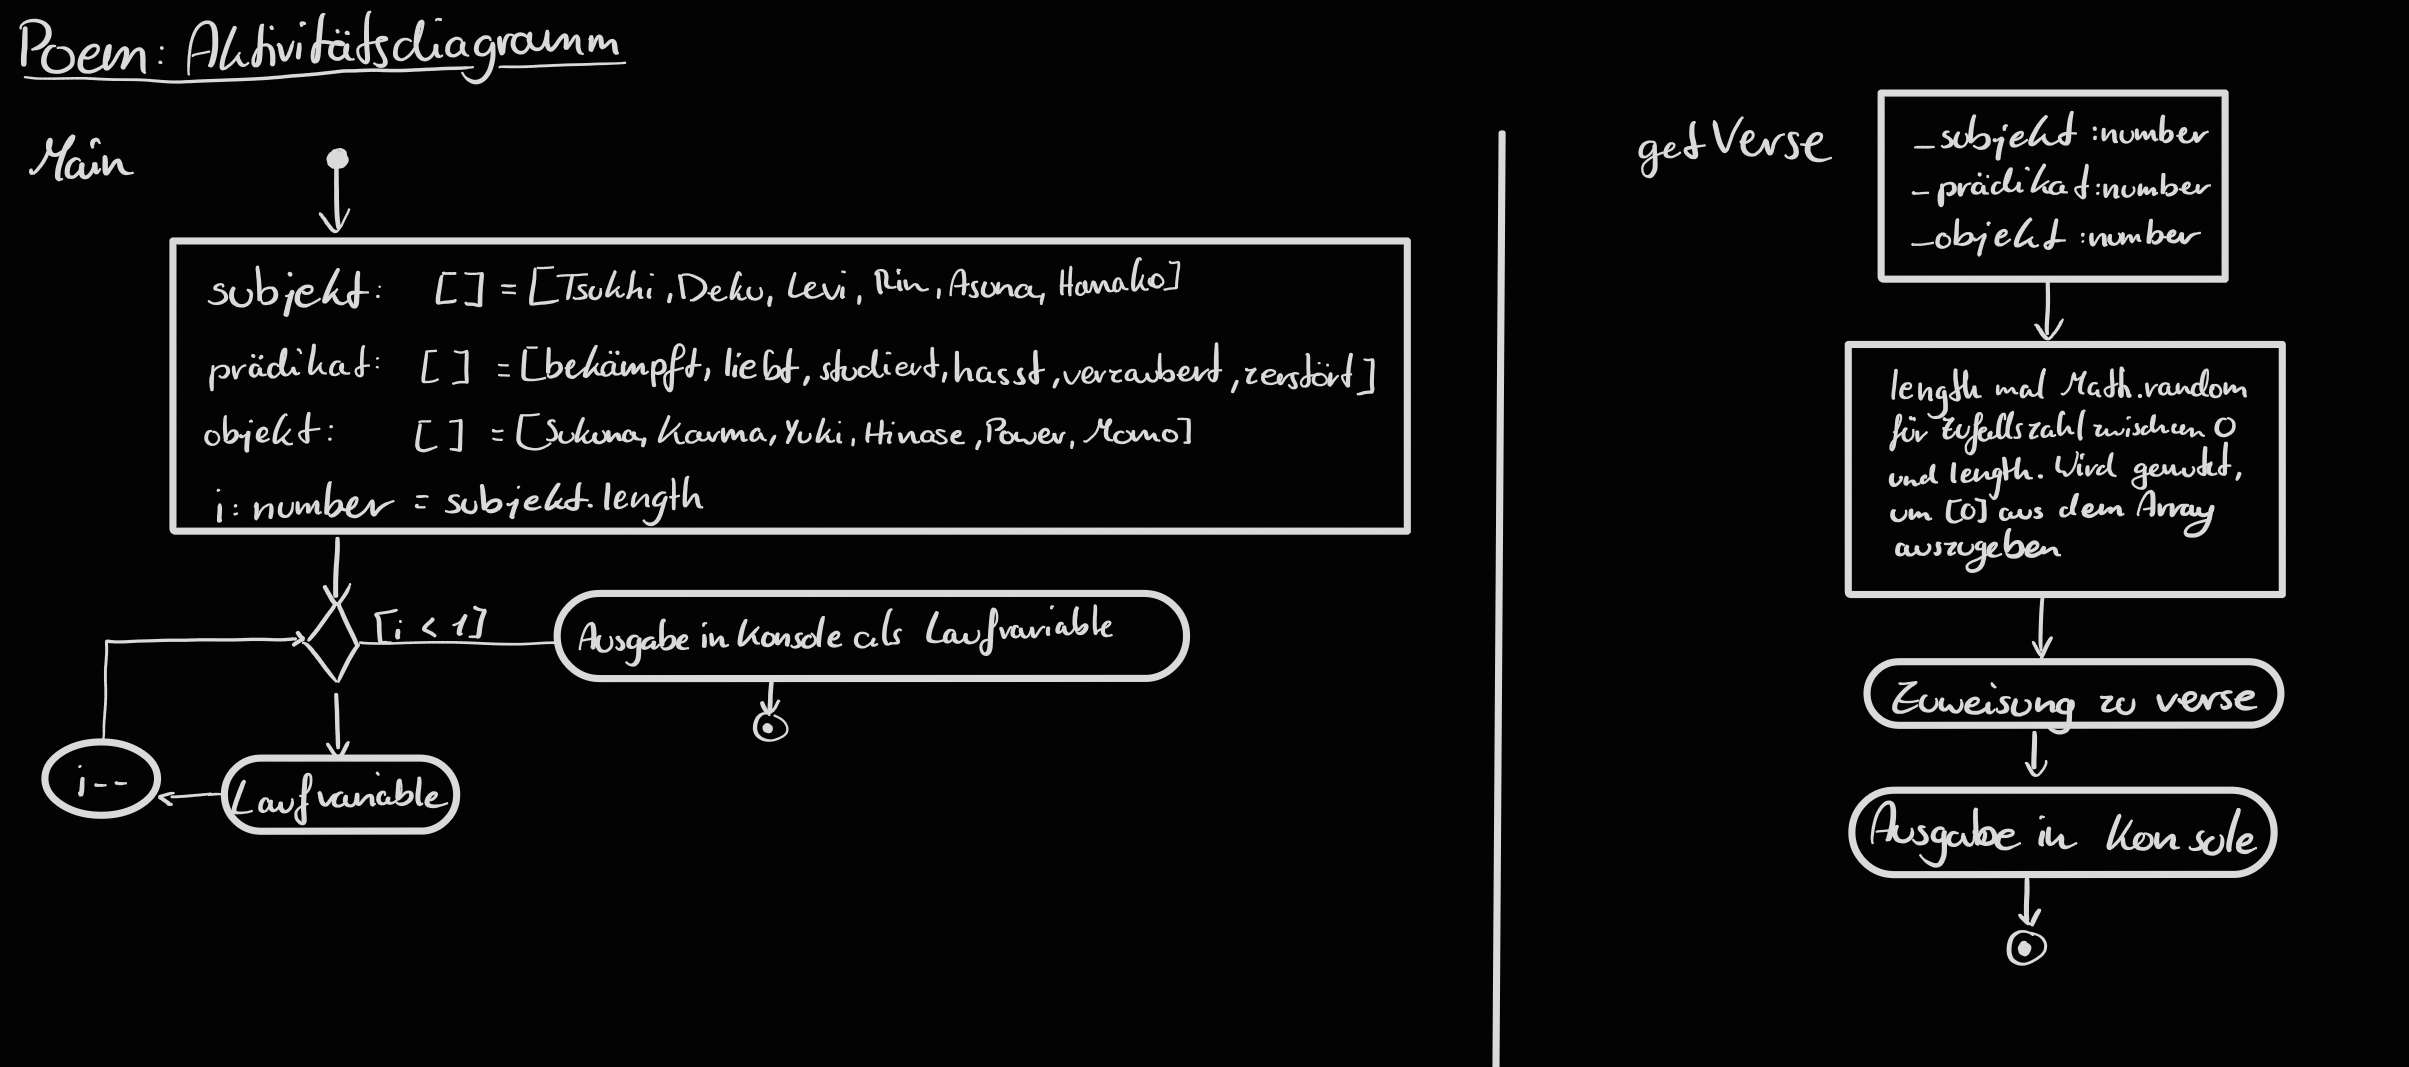 Poem: Aktivitätsdiagramm
Main
subjekt: [ ] = [Tsukhi, Deku, Levi, Rin, Asuna, Hanako]
prädikat: [ ] = [bekämpft, liebt, studiert, hasst, verzaubert, zerstört]
objekt: [ ] = [Sukuna, Karma, Yuki, Hinase, Power, Momo]
i: number = subjekt.length
[i < 1]
Ausgabe in Konsole als Laufvariable
i--
Laufvariable
getVerse
_subjekt :number
_prädikat:number
_objekt :number
length mal Math.random
für Zufallszahl zwischen 0
und length. Wird genutzt,
um [0] aus dem Array
auszugeben
Zuweisung zu verse
Ausgabe in Konsole